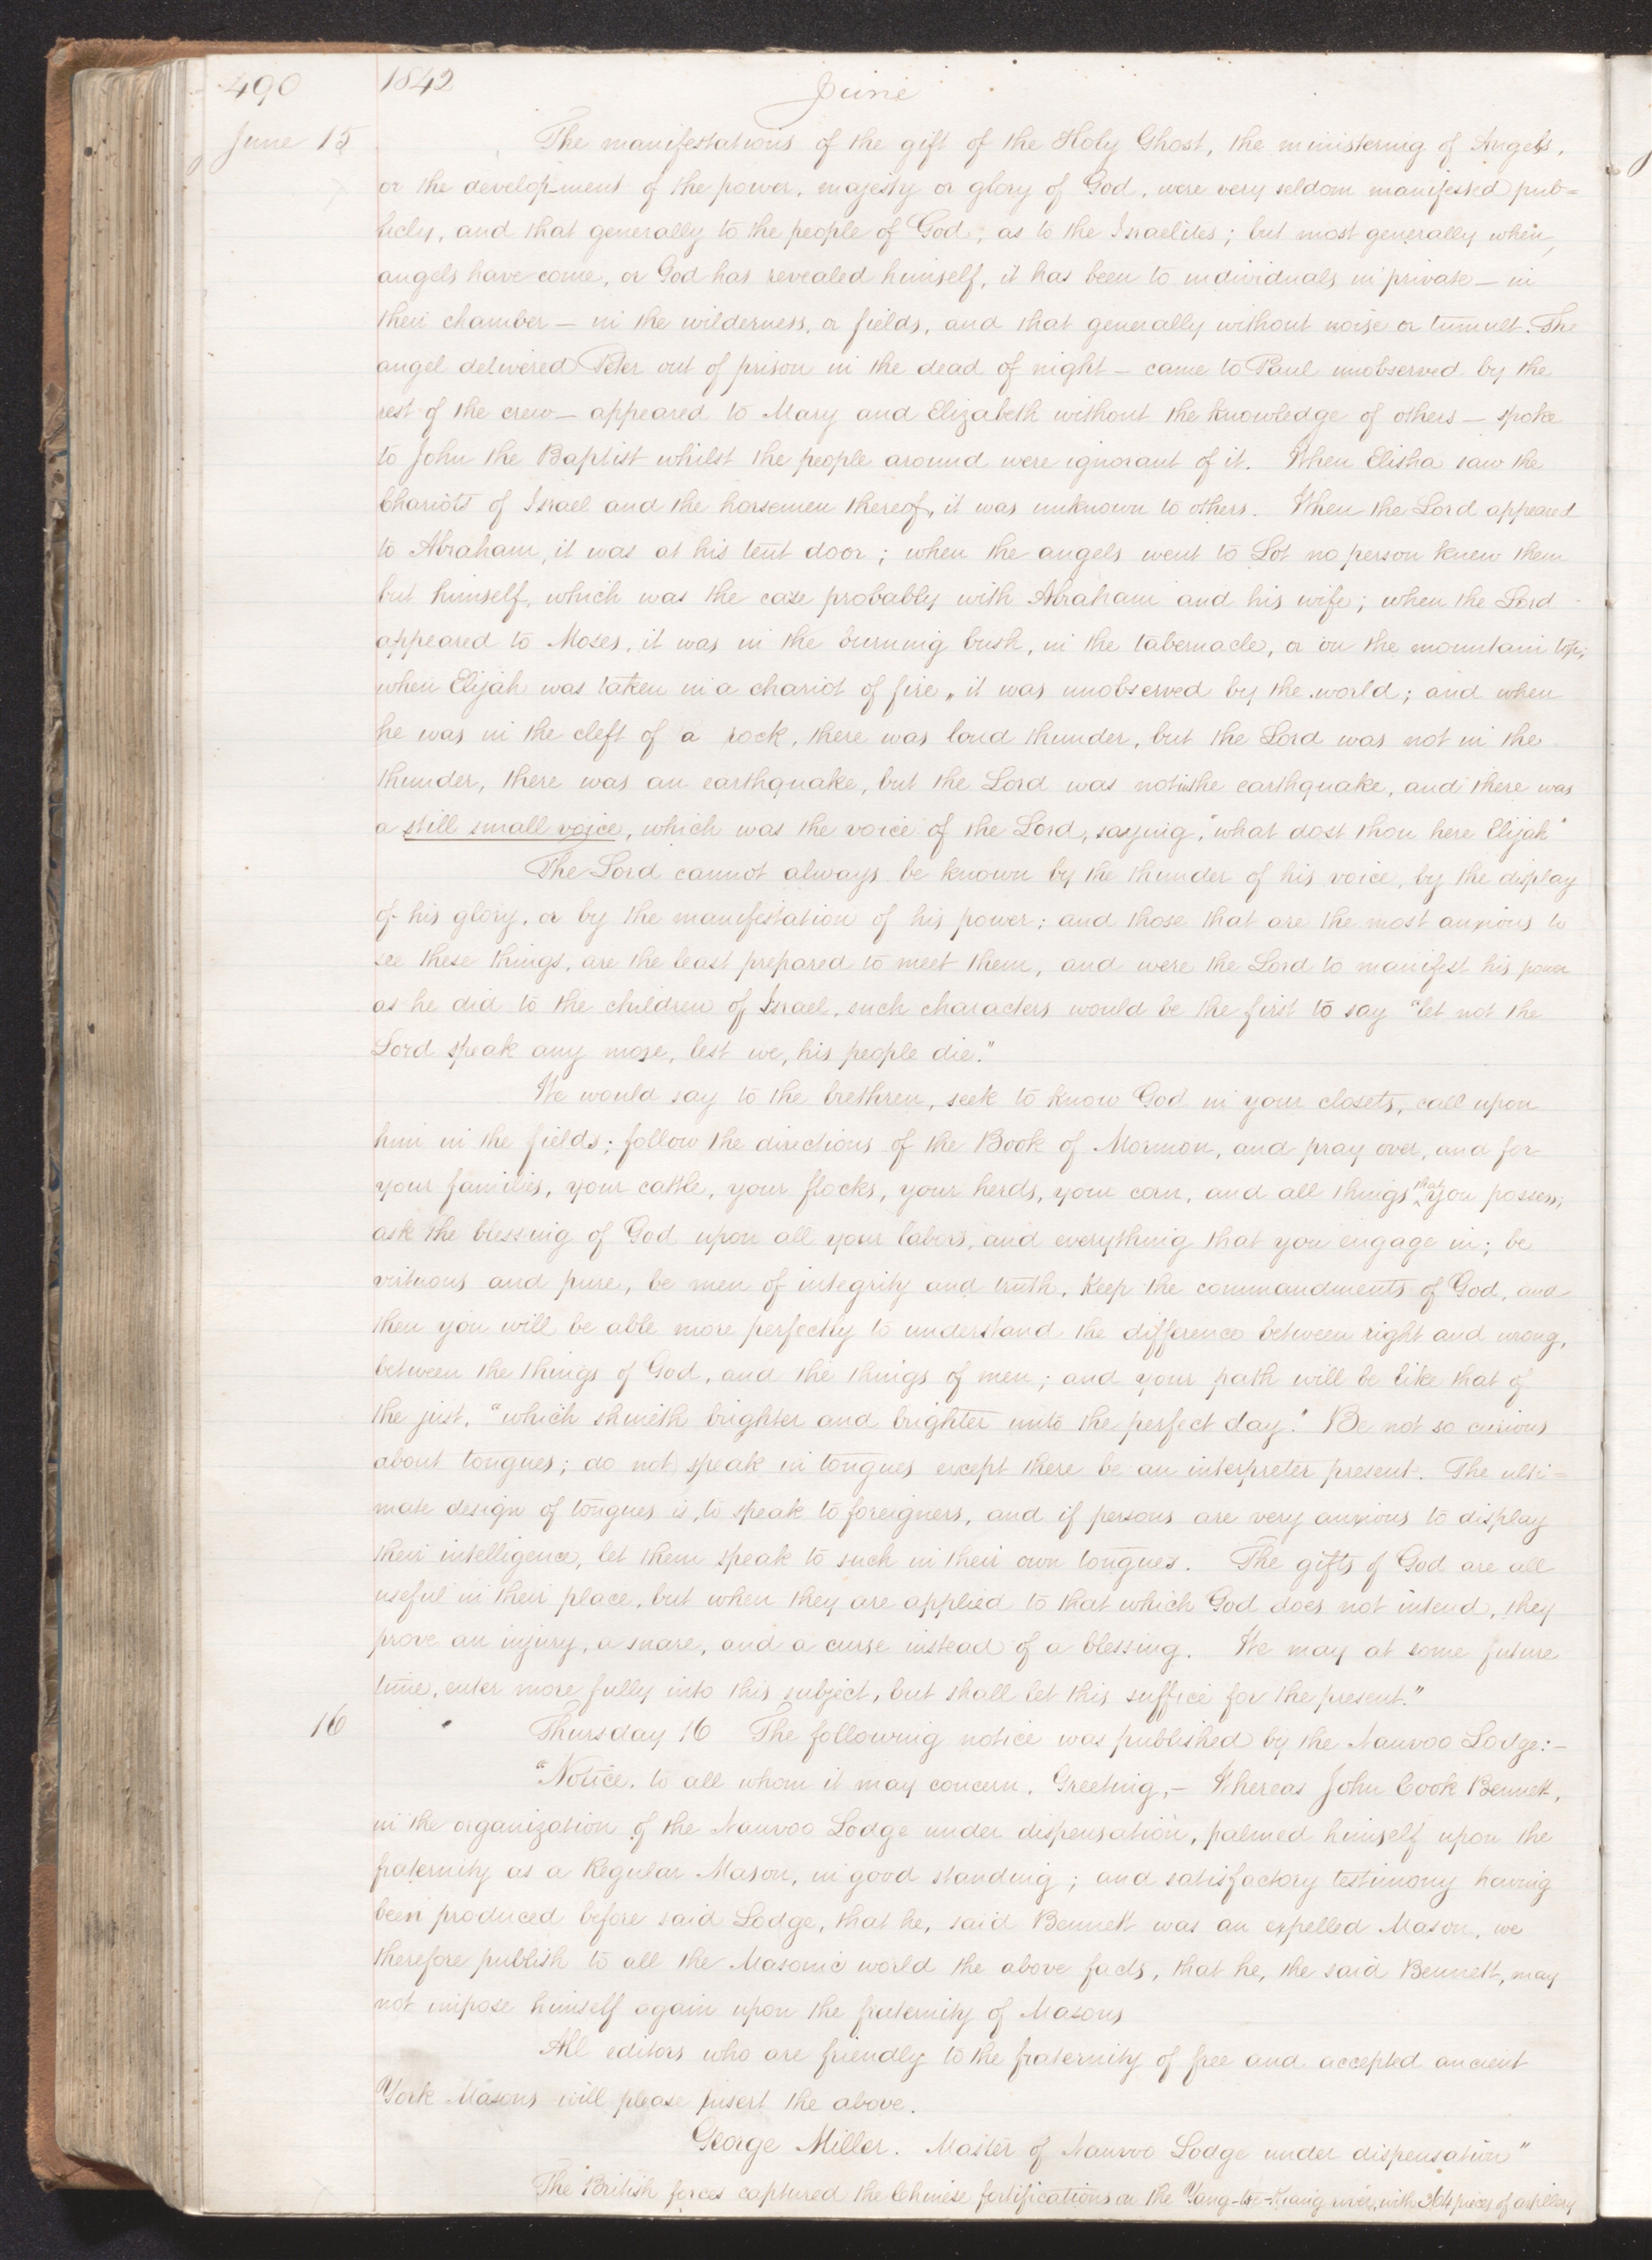 490 1842 June
June 15 The manifestations of the gift of the Holy Ghost, the ministering of Angels,
or the development of the power, majesty or glory of God, were very seldom manifested pub=
licly, and that generally to the people of God; as to the Israelites; but most generally when,
angels have come, or God has revealed himself, it has been to individuals in private — in
their chamber — in the wilderness, or fields, and that generally without noise or tumult. The
angel delivered Peter out of prison in the dead of night — came to Paul unobserved by the
rest of the crew — appeared to Mary and Elizabeth without the knowledge of others — spoke
to John the Baptist whilst the people around were ignorant of it. When Elisha saw the
Chariots of Israel and the horsemen thereof, it was unknown to others. When the Lord appeared
to Abraham, it was at his tent door; when the angels went to Lot no person knew them
but himself, which was the case probably with Abraham and his wife; when the Lord
appeared to Moses, it was in the burning bush, in the tabernacle, or on the mountain top;
when Elijah was taken in a chariot of fire, it was unobserved by the world; and when
he was in the cleft of a rock, there was loud thunder, but the Lord was not in the
thunder, there was an earthquake, but the Lord was not in the earthquake, and there was
a still small voice, which was the voice of the Lord, saying, "what dost thou here Elijah"
The Lord cannot always be known by the thunder of his voice, by the display
of his glory, or by the manifestation of his power; and those that are the most anxious to
see these things, are the least prepared to meet them, and were the Lord to manifest his power
as he did to the children of Israel, such characters would be the first to say "let not the
Lord speak any more, lest we, his people die."
We would say to the brethren, seek to know God in your closets, call upon
him in the fields; follow the directions of the Book of Mormon, and pray over, and for
your families, your cattle, your flocks, your herds, your corn, and all things that you possess;
ask the blessing of God upon all your labors, and everything that you engage in; be
virtuous and pure, be men of integrity and truth, keep the commandments of God, and
then you will be able more perfectly to understand the difference between right and wrong,
between the things of God, and the things of men; and your path will be like that of
the just, "which shineth brighter and brighter unto the perfect day." Be not so curious
about tongues; do not speak in tongues except there be an interpreter present. The ulti=
mate design of tongues is, to speak to foreigners, and if persons are very anxious to display
their intelligence, let them speak to such in their own tongues. The gifts of God are all
useful in their place, but when they are applied to that which God does not intend, they
prove an injury, a snare, and a curse instead of a blessing. We may at some future
time, enter more fully into this subject, but shall let this suffice for the present."
16 Thursday 16 The following notice was published by the Nauvoo Lodge:—
"Notice. to all whom it may concern, Greeting,— Whereas John Cook Bennett,
in the organization of the Nauvoo Lodge under dispensation, palmed himself upon the
fraternity as a Regular Mason, in good standing; and satisfactory testimony having
been produced before said Lodge, that he, said Bennett was an expelled Mason, we
therefore publish to all the Masonic world the above facts, that he, the said Bennett, may
not impose himself again upon the fraternity of Masons
All editors who are friendly to the fraternity of free and accepted ancient
York Masons will please insert the above.
George Miller. Master of Nauvoo Lodge under dispensation"
The British forces captured the Chinese fortifications on the Yang-tse-Kiang river, with 364 pieces of artillery